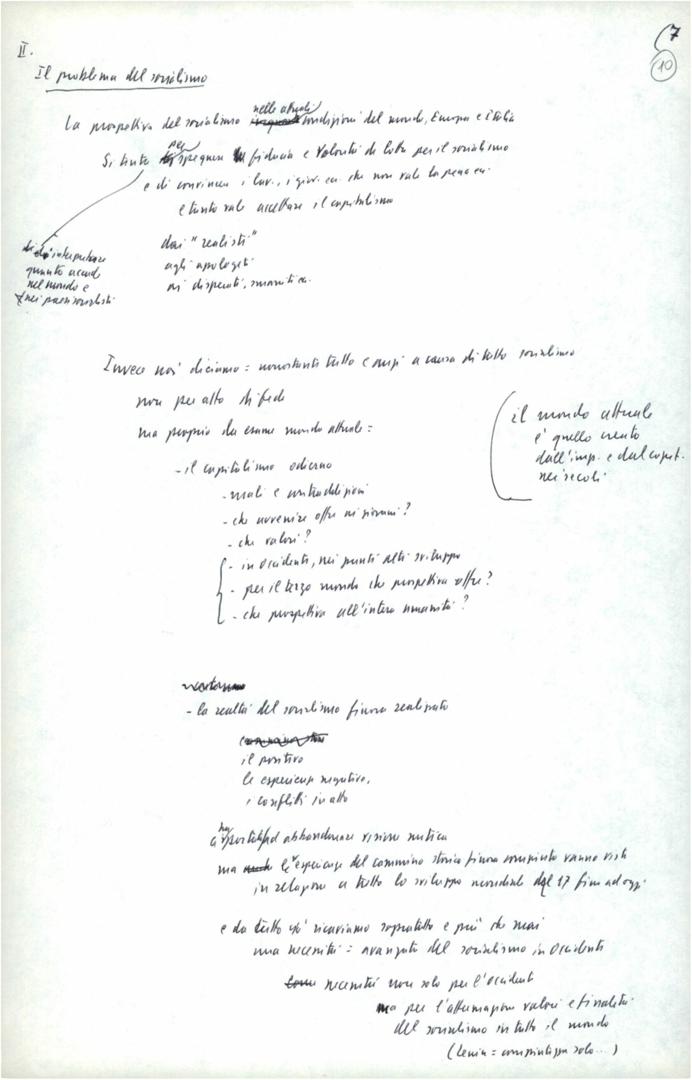 7
10
II.
Il problema del socialismo
nelle attuali
La prospettiva del socialismo condizioni del mondo, Europa e Italia
per
Si tenta spegnere fiducia e volontà di lotta per il socialismo
e di convincere i lav., i giov. ecc. che non vale la pena ecc.
e tanto vale accettare il capitalismo
interpretare
quanto accade
nel mondo e
nei paesi socialisti
dai "realisti"
agli apologeti
ai disperati,
Invece noi diciamo: nonostante tutto e anzi a causa di tutto socialismo
non per atto di fede
ma proprio da esame mondo attuale:
il mondo attuale
è quello creato
dall'imp. e dal capit.
nei secoli
- il capitalismo odierno
- mali e contraddizioni
- che avvenire offre ai giovani?
- che valori?
- in Occidente, nei punti alti sviluppo
- per il terzo mondo che prospettiva offre?
- che prospettiva all'intera umanità?
- la realtà del socialismo finora realizzato
il positivo
le esperienze negative,
i conflitti in atto
ha
ci portato ad abbandonare visione mitica
ma le esperienze del cammino storico finora compiuto vanno viste
in relazione a tutto lo sviluppo mondiale dal 17 fino ad oggi
e da tutto ciò ricaviamo soprattutto e più che mai
una necessità: avanzata del socialismo in Occidente
necessità non solo per l'Occidente
ma per l'affermazione valori e finalità
del socialismo in tutto il mondo
(Lenin: solo...)